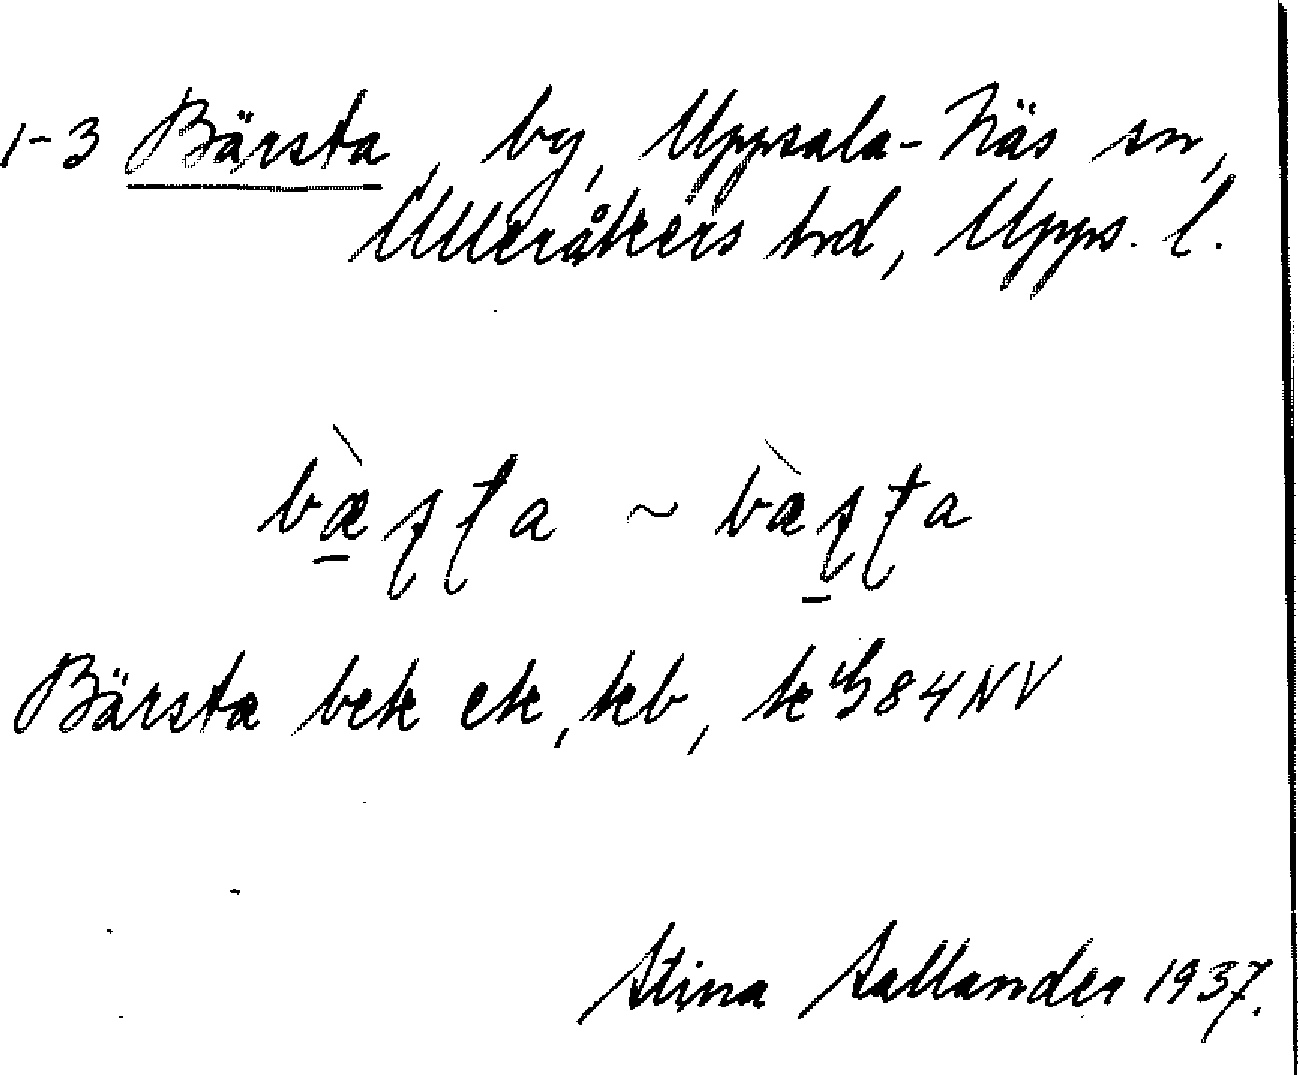 1-3 Bärsta, by, Uppsala-Näs sn,
Ulleråkers hd, Upps. l.
bæ̀ʂʈa ~ bæ̀ʂʈa
Bärsta bek ek, kb, k 84NV
Stina Sallander 1937.